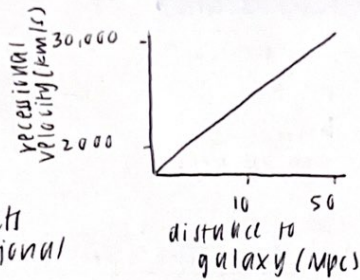 recessional
velocity (km/s)
30,000
2000
10
50
distance to
galaxy (Mpc)